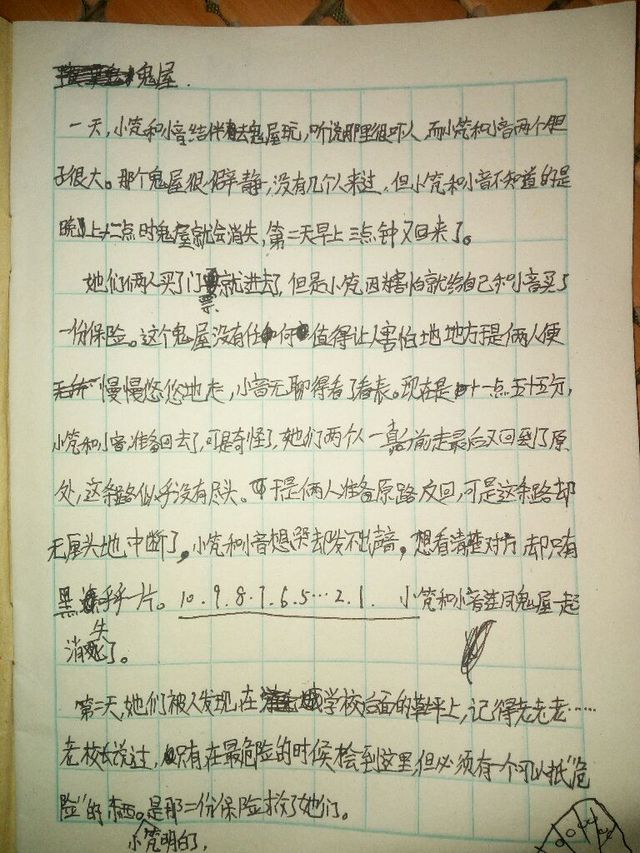 鬼屋.
一天,小梵和小音结伴去鬼屋玩,听说那里很吓人,而小梵和小音两个胆
子很大。那个鬼屋很僻静,没有几个人来过,但小梵和小音不知道的是
晚上十二点时鬼屋就会消失,第二天早上三点钟又回来了。
她们俩人买了门票就进去了,但是小梵因为害怕就给自己和小音买了
一份保险。这个鬼屋没有任何值得让人害怕地地方于是俩人便
慢慢悠悠地走,小音无聊得看了看表。现在是十一点五十五分,
小梵和小音准备回去了,可是奇怪了,她们两个人一直向前走最后又回到了原
处,这条路似乎没有尽头。于是俩人准备原路反回,可是这条路却
无厘头地中断了,小梵和小音想哭却发不出声音,想看清楚对方却只有
黑乎乎一片。10.9.8.7.6.5…2.1. 小梵和小音连同鬼屋一起
消失了。
第二天,她们被人发现在学校后面的草坪上,记得老老老……
老校长说过,只有在最危险的时候会到这里,但必须有一个可以抵“危
险”的东西。是那二份保险救了她们。
小梵明白了,